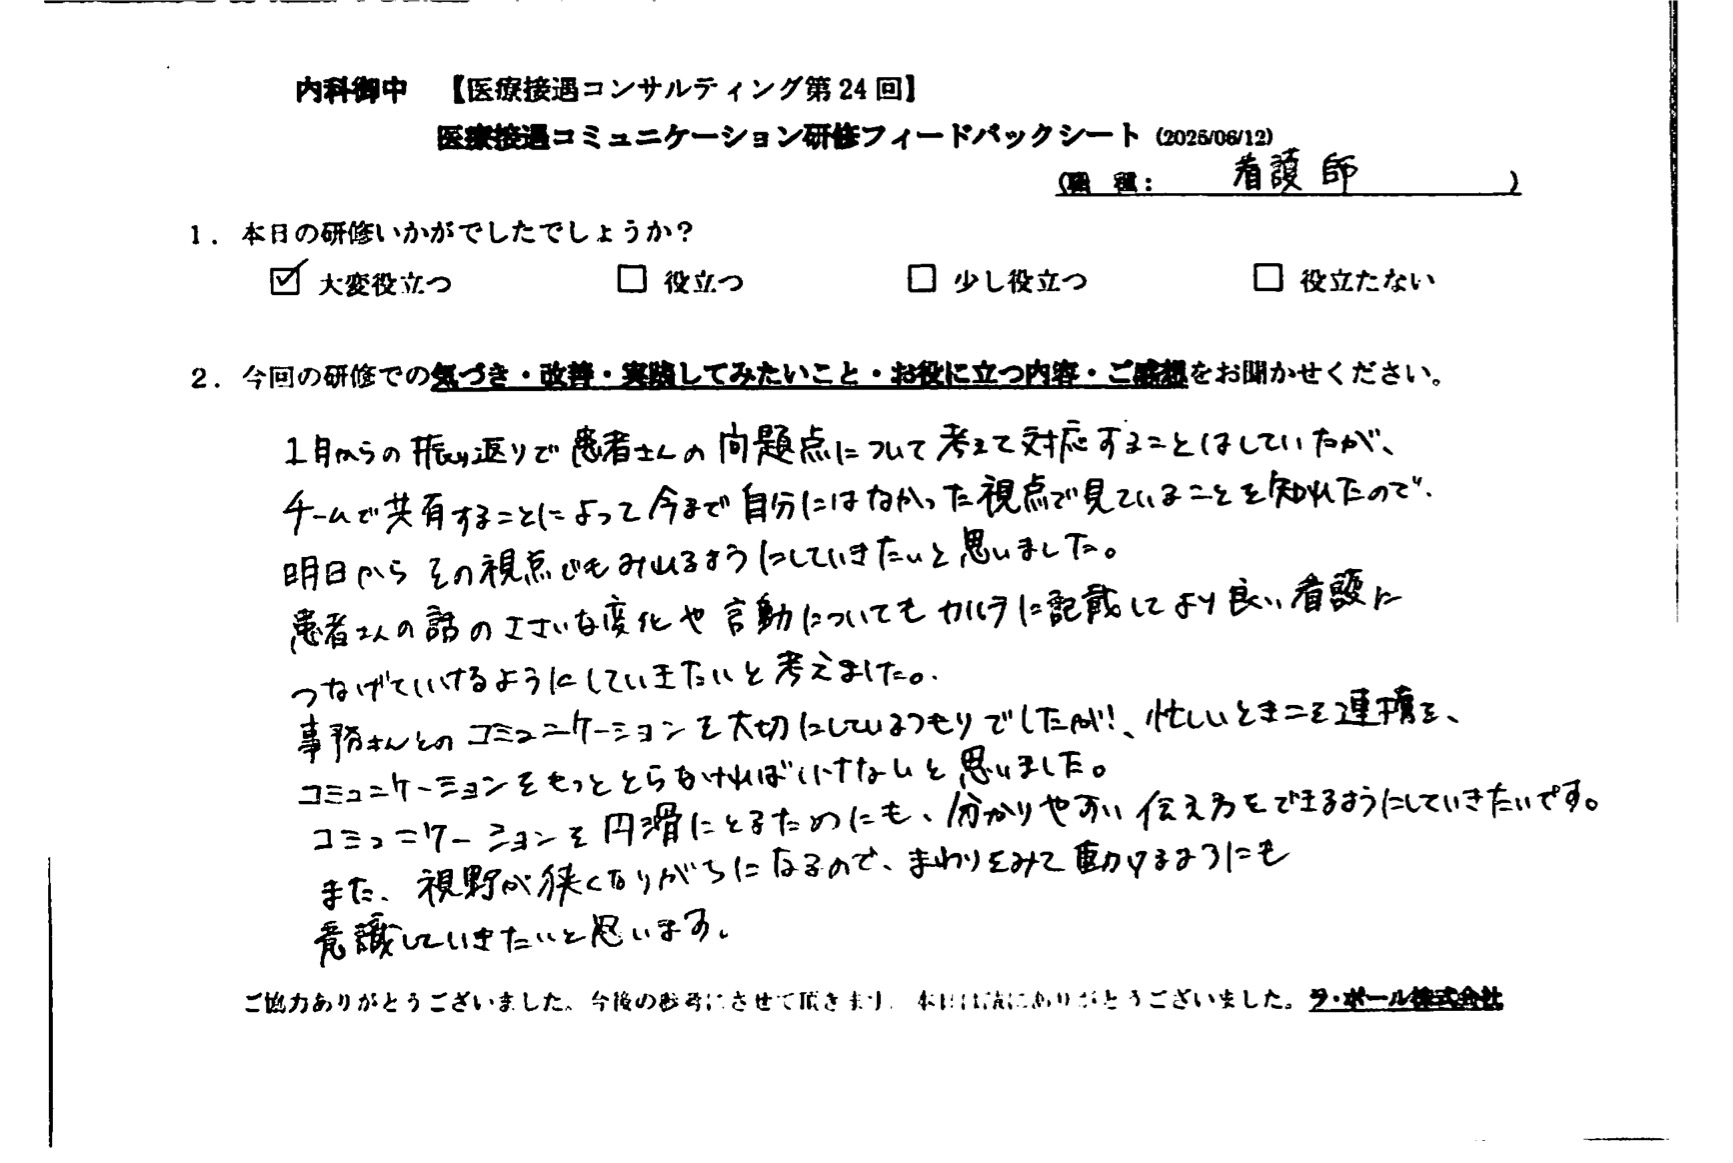 内科御中 【医療接遇コンサルティング第24回】
医療接遇コミュニケーション研修フィードバックシート (2025/06/12)
(職 種: 看護師 )
1. 本日の研修いかがでしたでしょうか?
☑ 大変役立つ □ 役立つ □ 少し役立つ □ 役立たない
2. 今回の研修での気づき・改善・実践してみたいこと・お役に立つ内容・ご感想をお聞かせください。
1月からの振り返りで患者さんの問題点について考えて対応することはしていたが、
チームで共有することによって今まで自分にはなかった視点で見ていることを知れたので、
明日からその視点でもみれるようにしていきたいと思いました。
患者さんの話のささいな変化や言動についてもカルテに記載してより良い看護に
つなげていけるようにしていきたいと考えました。
事務さんとのコミュニケーションを大切にしているつもりでしたが!、忙しいときこそ連携を、
コミュニケーションをもっととらなければいけないと思いました。
コミュニケーションを円滑にとるためにも、分かりやすい伝え方をできるようにしていきたいです。
また、視野が狭くなりがちになるので、まわりをみて動けるようにも
意識していきたいと思います。
ご協力ありがとうございました。今後の参考にさせて頂きます。本日は誠にありがとうございました。ラ・ポール株式会社